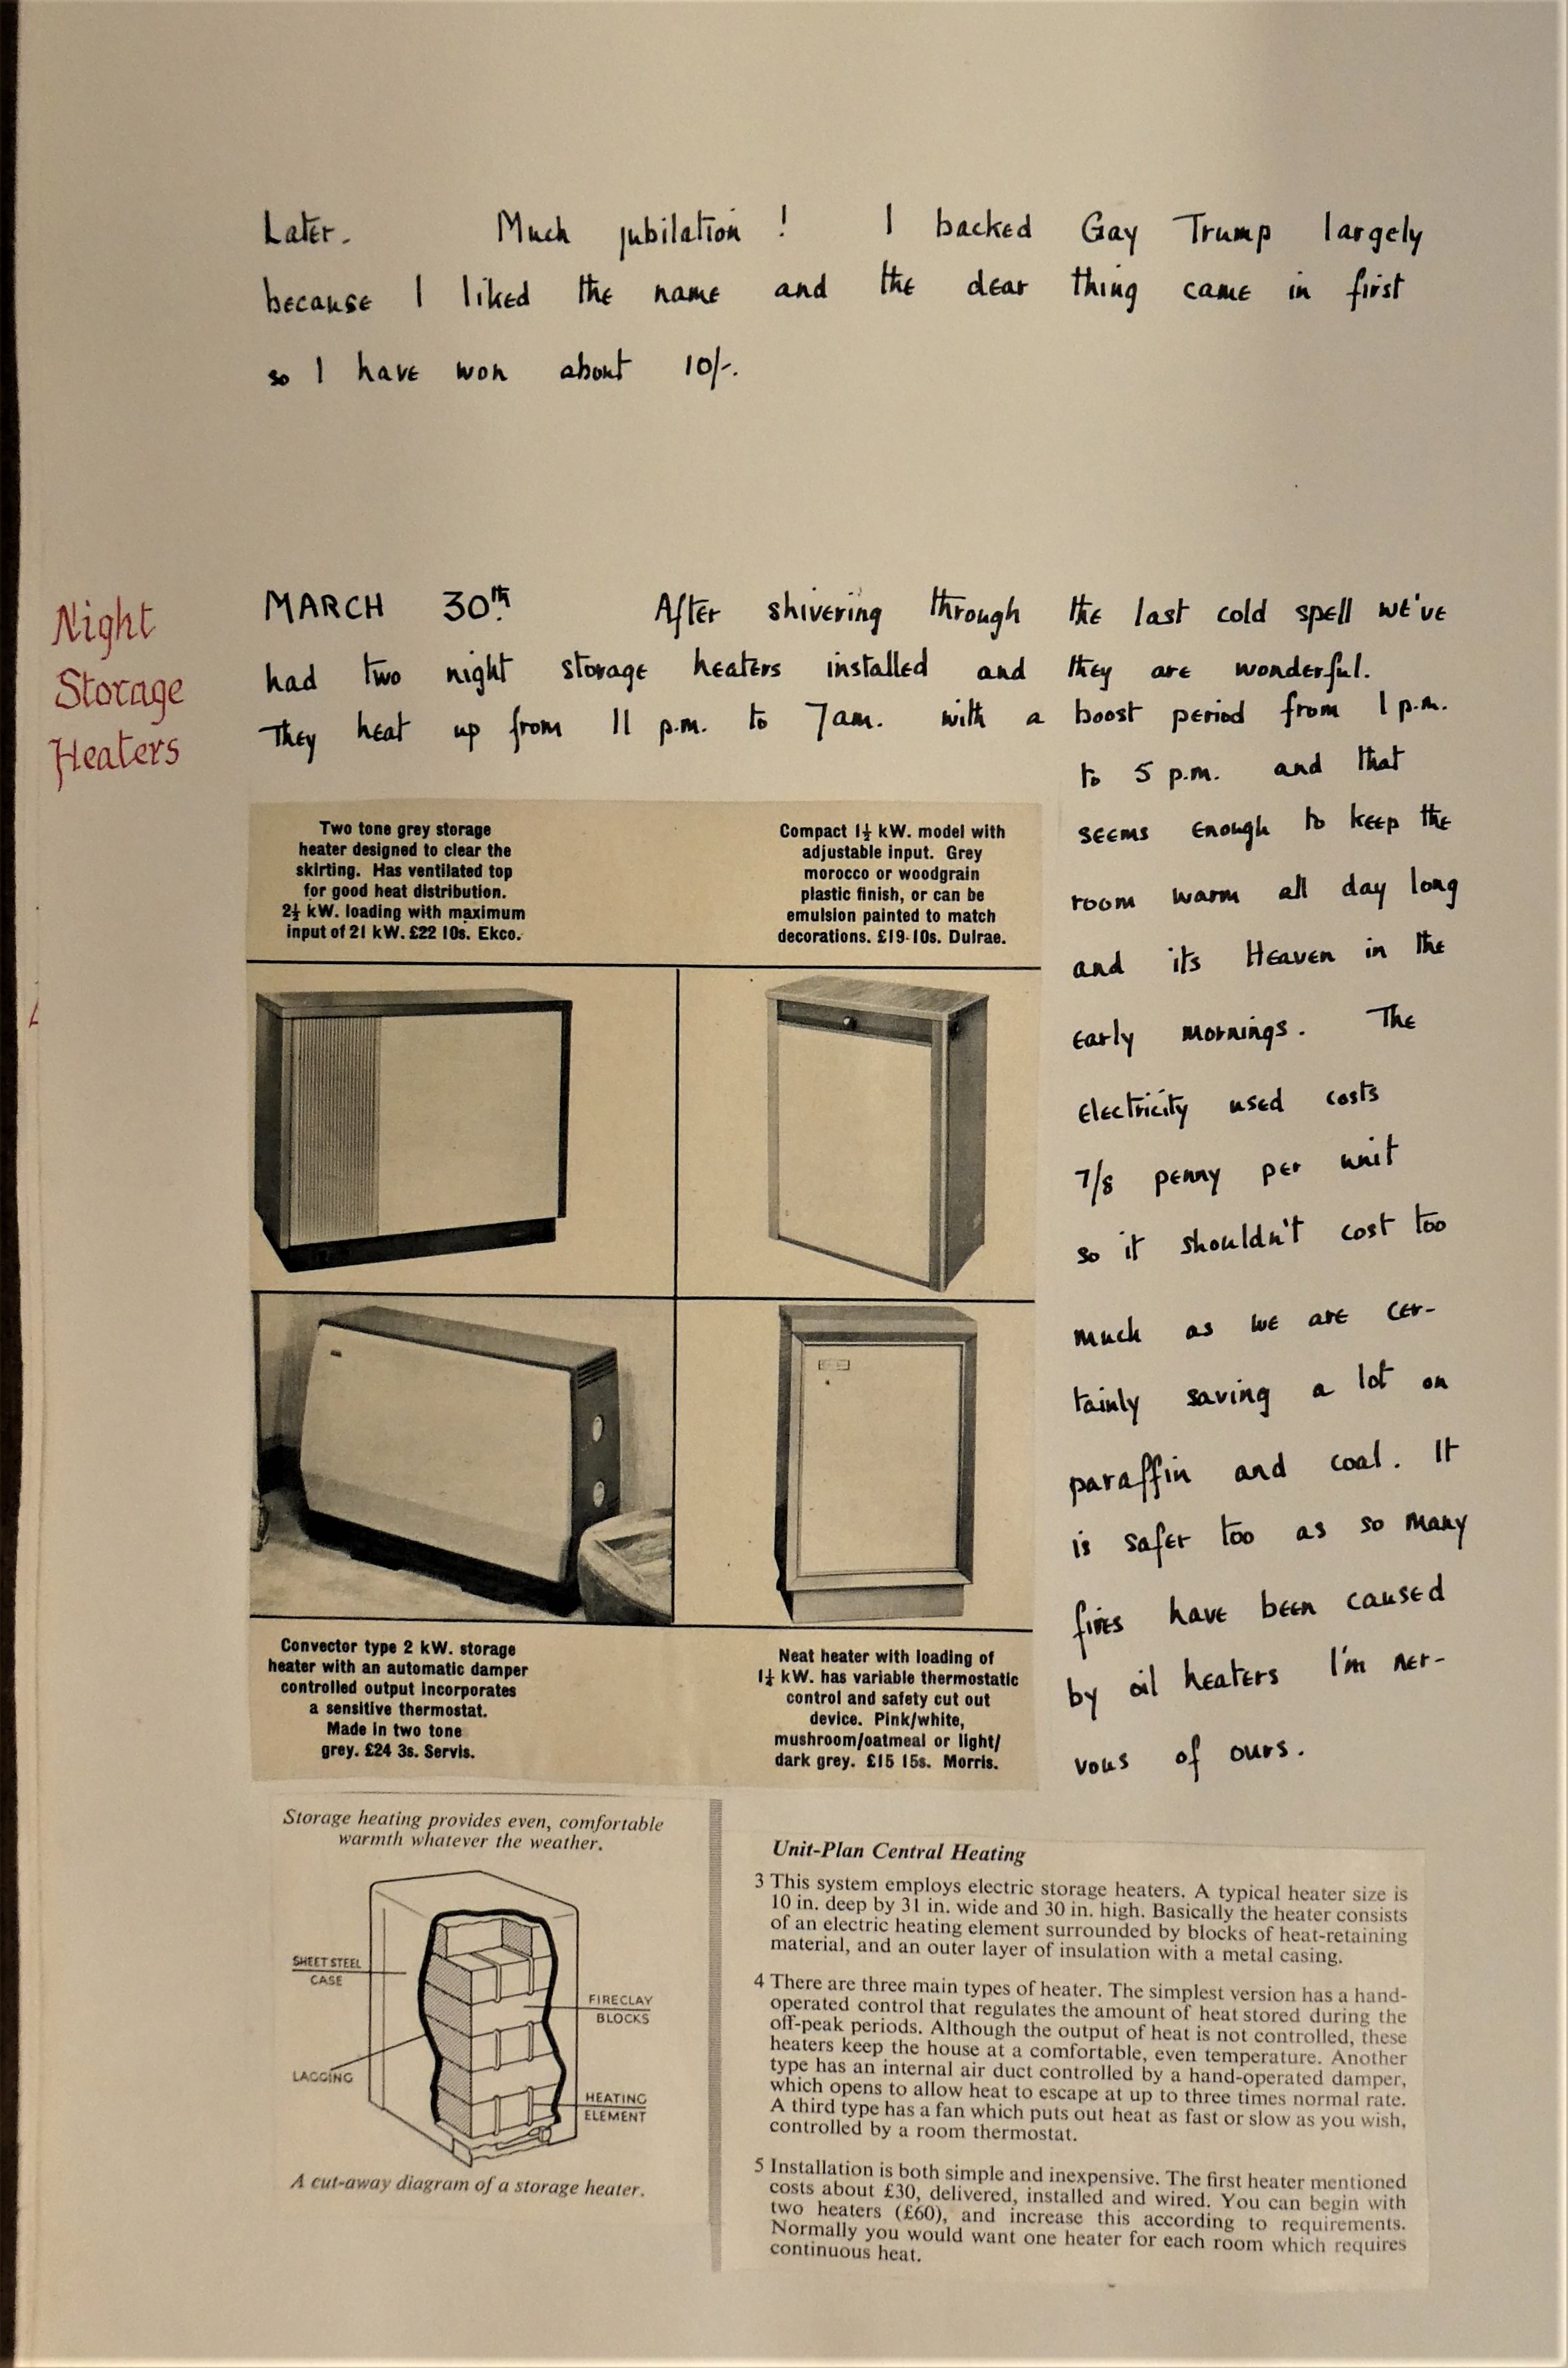 Later. Much jubilation! I backed Gay Trump largely
because I liked the name and the dear thing came in first
so I have won about 10/-.
Night
Storage
Heaters
MARCH 30th. After shivering through the last cold spell we've
had two night storage heaters installed and they are wonderful.
They heat up from 11 p.m. to 7am. with a boost period from 1 p.m.
to 5 p.m. and that
seems enough to keep the
room warm all day long
and its Heaven in the
early mornings. The
electricity used costs
7/8 penny per unit
so it shouldn't cost too
much as we are cer-
tainly saving a lot on
paraffin and coal. It
is safer too as so many
fires have been caused
by oil heaters I'm ner-
vous of ours.
Two tone grey storage
heater designed to clear the
skirting. Has ventilated top
for good heat distribution.
2½ kW. loading with maximum
input of 21 kW. £22 10s. Ekco.
Compact 1½ kW. model with
adjustable input. Grey
morocco or woodgrain
plastic finish, or can be
emulsion painted to match
decorations. £19·10s. Dulrae.
Convector type 2 kW. storage
heater with an automatic damper
controlled output incorporates
a sensitive thermostat.
Made in two tone
grey. £24 3s. Servis.
Neat heater with loading of
1½ kW. has variable thermostatic
control and safety cut out
device. Pink/white,
mushroom/oatmeal or light/
dark grey. £15 15s. Morris.
Storage heating provides even, comfortable
warmth whatever the weather.
SHEET STEEL
CASE
FIRECLAY
BLOCKS
LAGGING
HEATING
ELEMENT
A cut-away diagram of a storage heater.
Unit-Plan Central Heating
3 This system employs electric storage heaters. A typical heater size is
10 in. deep by 31 in. wide and 30 in. high. Basically the heater consists
of an electric heating element surrounded by blocks of heat-retaining
material, and an outer layer of insulation with a metal casing.
4 There are three main types of heater. The simplest version has a hand-
operated control that regulates the amount of heat stored during the
off-peak periods. Although the output of heat is not controlled, these
heaters keep the house at a comfortable, even temperature. Another
type has an internal air duct controlled by a hand-operated damper,
which opens to allow heat to escape at up to three times normal rate.
A third type has a fan which puts out heat as fast or slow as you wish,
controlled by a room thermostat.
5 Installation is both simple and inexpensive. The first heater mentioned
costs about £30, delivered, installed and wired. You can begin with
two heaters (£60), and increase this according to requirements.
Normally you would want one heater for each room which requires
continuous heat.